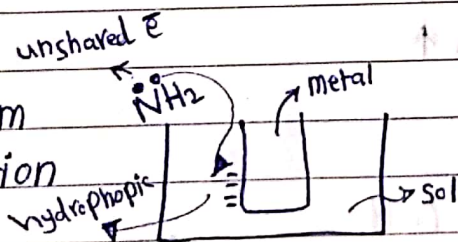 unshared ē
metal
m
N̈H2
ion
hydrophopic
sol